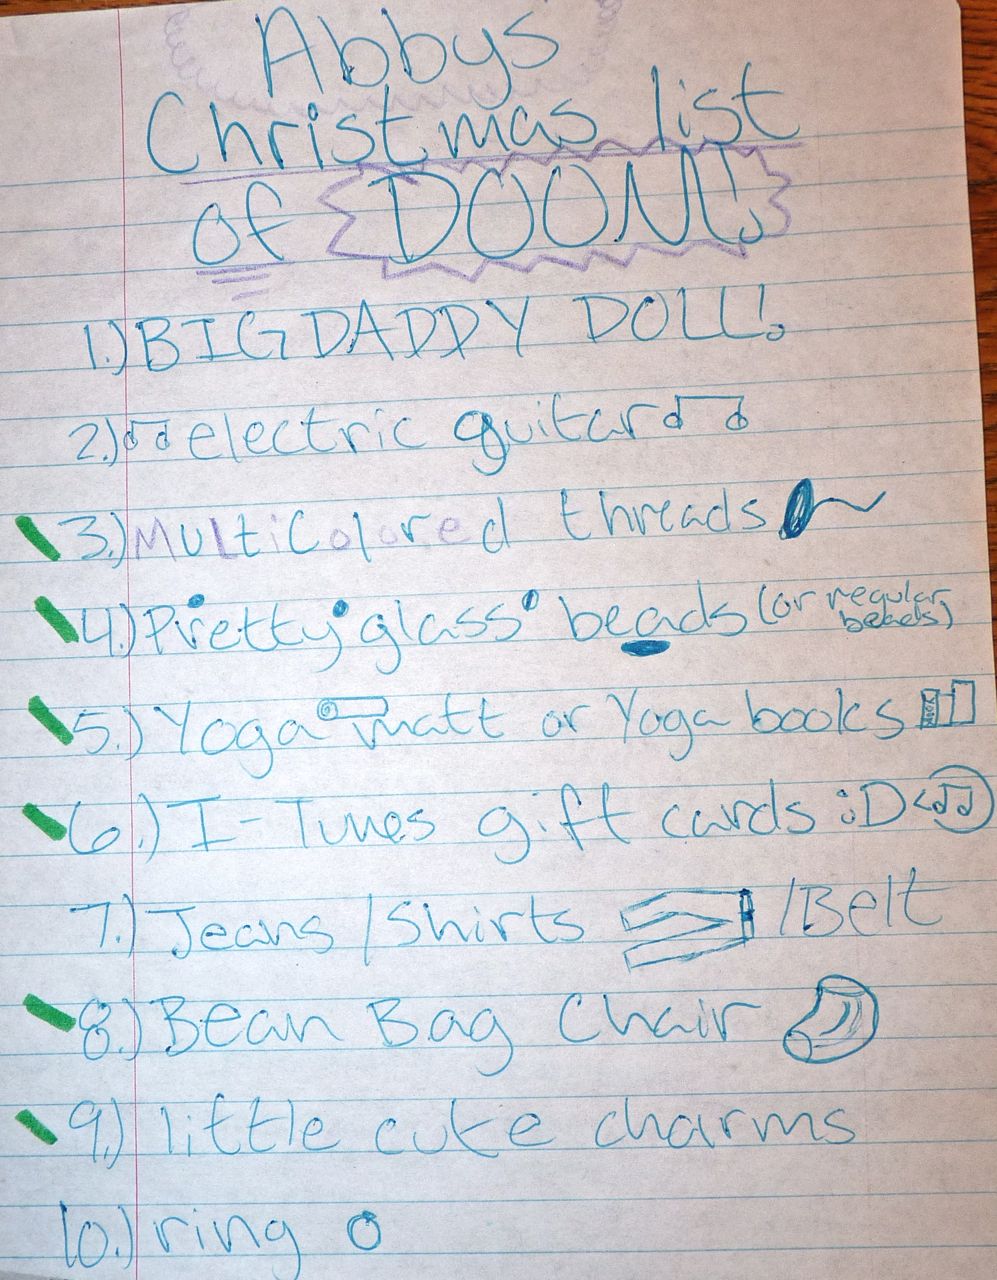 Abbys
Christmas list
of DOOM!
1.) BIG DADDY DOLL!
2.) electric guitar
3.) MultiColored threads
4.) Pretty glass beads (or regular beads)
5.) Yoga matt or Yoga books
6.) I-Tunes gift cards :D <
7.) Jeans / Shirts / Belt
8.) Bean Bag Chair
9.) little cute charms
10.) ring